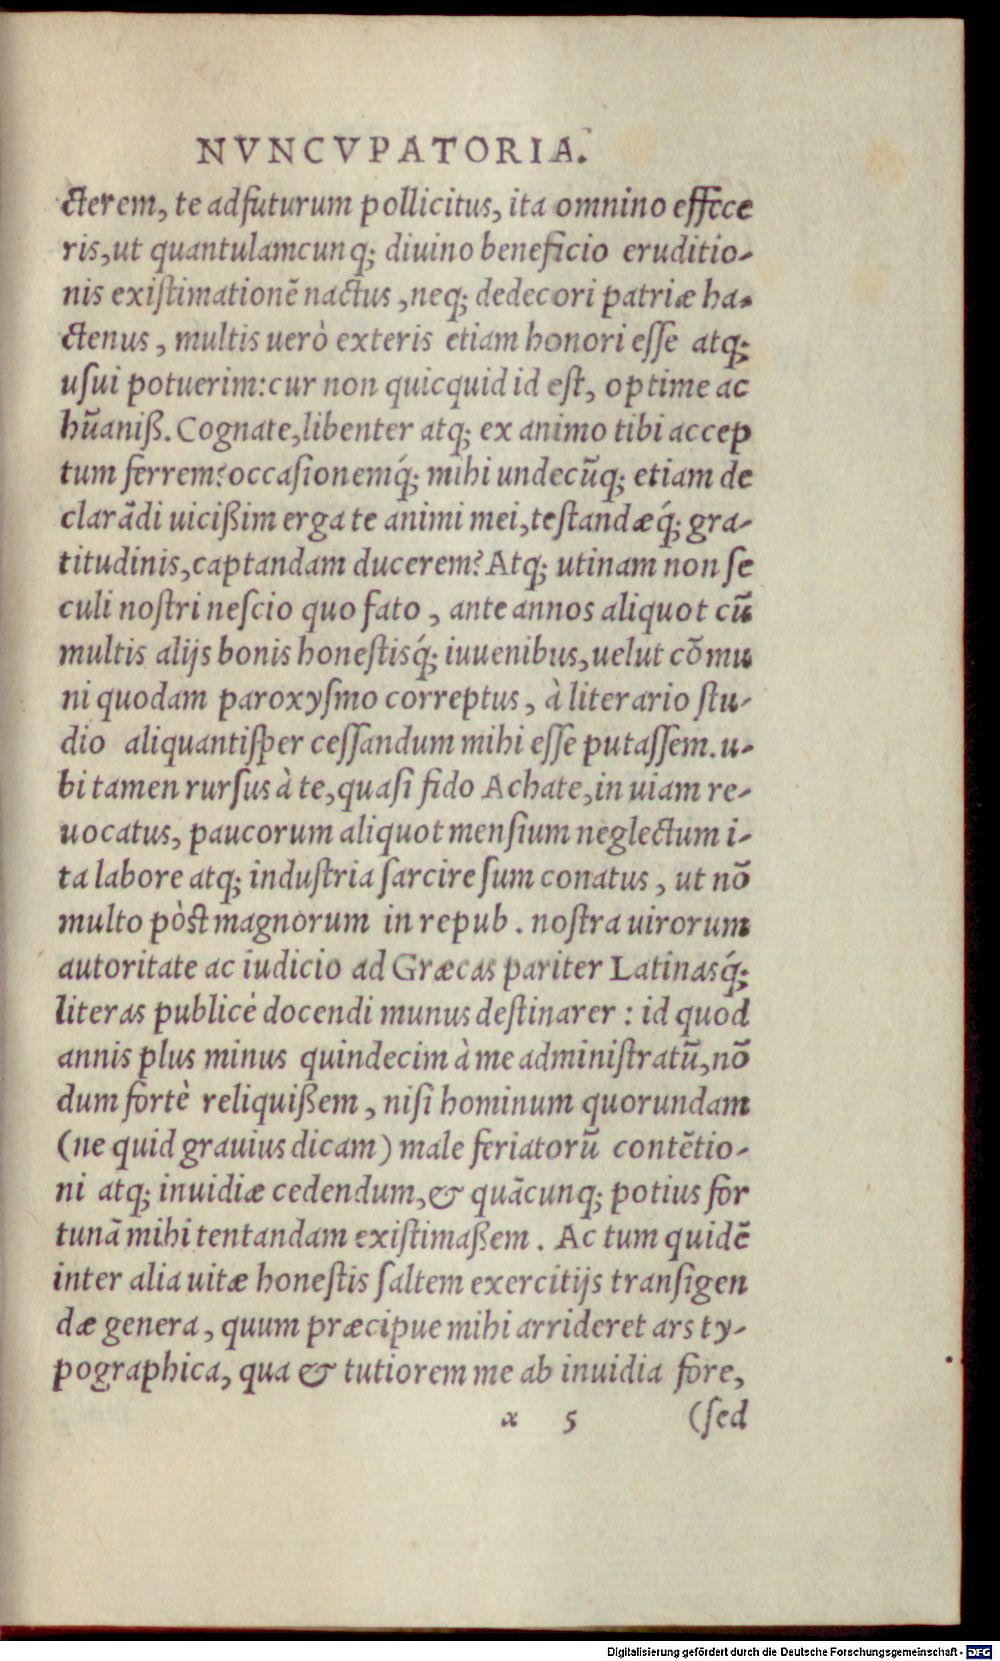 NVNCVPATORIA.
cterem, te adfuturum pollicitus, ita omnino effece
ris, ut quantulamcunq; diuino beneficio eruditio-
nis existimationẽ nactus, neq; dedecori patriæ ha-
ctenus, multis uerò exteris etiam honori esse atq;
usui potuerim: cur non quicquid id est, optime ac
hũaniß. Cognate, libenter atq; ex animo tibi accep
tum ferrem? occasionemq́; mihi undecũq; etiam de
clarãdi uicißim erga te animi mei, testandæq́; gra-
titudinis, captandam ducerem? Atq; utinam non se
culi nostri nescio quo fato, ante annos aliquot cũ
multis alijs bonis honestisq́; iuuenibus, uelut cõmu
ni quodam paroxysmo correptus, à literario stu-
dio aliquantisper cessandum mihi esse putassem. u-
bi tamen rursus à te, quasi fido Achate, in uiam re-
uocatus, paucorum aliquot mensium neglectum i-
ta labore atq; industria sarcire sum conatus, ut nõ
multo pòst magnorum in repub. nostra uirorum
autoritate ac iudicio ad Græcas pariter Latinasq́;
literas publicè docendi munus destinarer: id quod
annis plus minus quindecim à me administratũ, nõ
dum fortè reliquißem, nisi hominum quorundam
(ne quid grauius dicam) male feriatorũ contẽtio-
ni atq; inuidiæ cedendum, & quãcunq; potius for
tunã mihi tentandam existimaßem. Ac tum quidẽ
inter alia uitæ honestis saltem exercitijs transigen
dæ genera, quum præcipue mihi arrideret ars ty-
pographica, qua & tutiorem me ab inuidia fore,
α 5 (sed
Digitalisierung gefördert durch die Deutsche Forschungsgemeinschaft - DFG